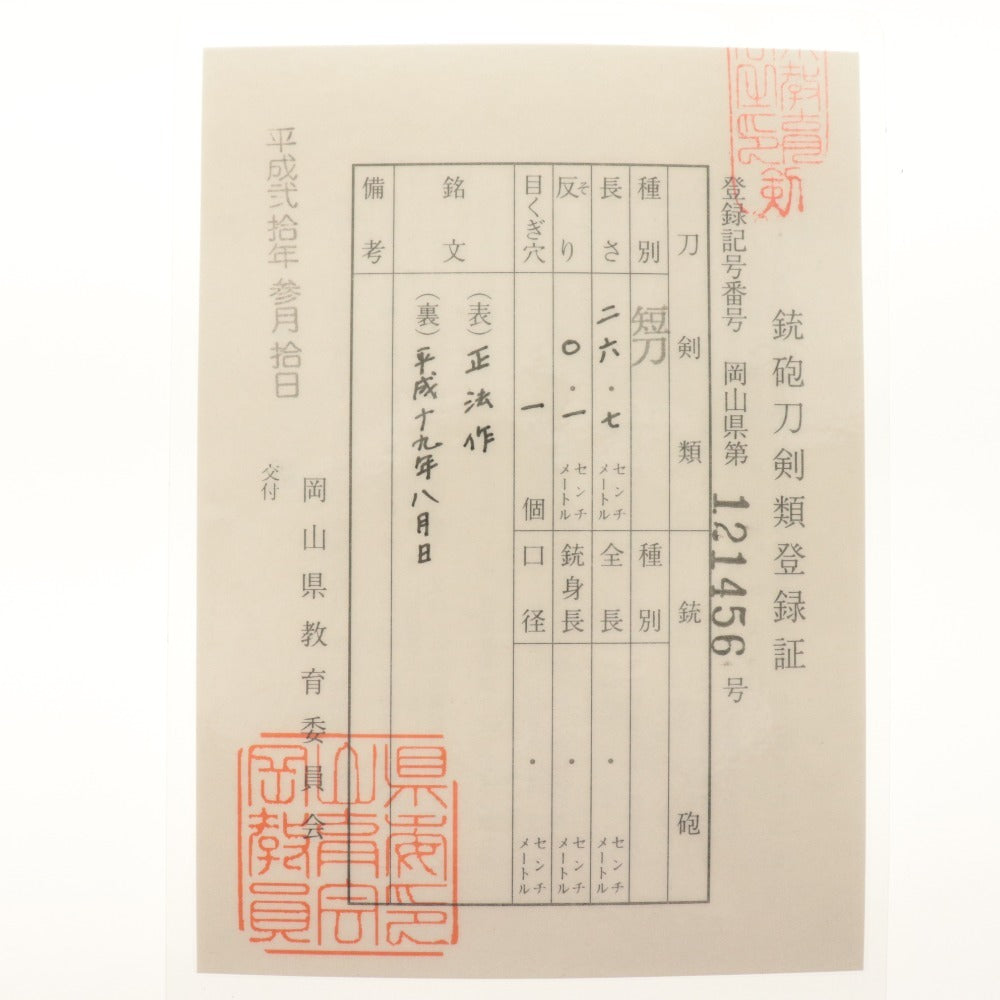 銃砲刀剣類登録証
登録記号番号 岡山県第 121456 号
刀剣類
種別 短刀
長さ 二六・七 センチメートル
反り そ 〇・一 センチメートル
目くぎ穴 一 個
銘文
(表)正法作
(裏)平成十九年八月日
備考
銃砲
種別
全長 ・ センチメートル
銃身長 ・ センチメートル
口径 ・ センチメートル
平成弐拾年参月拾日
交付
岡山県教育委員会
県委印
山育会
岡教員
剣